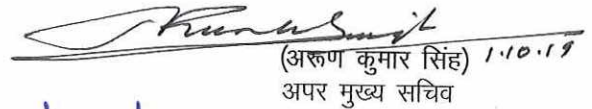 (अरूण कुमार सिंह) 1.10.19
अपर मुख्य सचिव